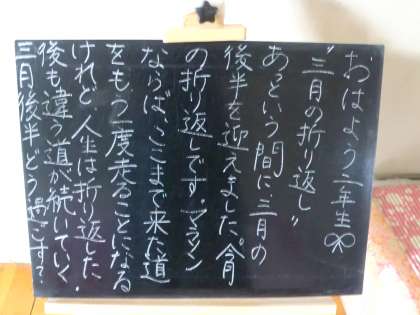 おはよう二年生
"三月の折り返し"
あっという間に三月の
後半を迎えました。今月
の折り返しです。マラソン
ならば、ここまで来た道
をもう一度走ることになる
けれど、人生は折り返した
後も違う道が続いていく。
三月後半どう過ごす?